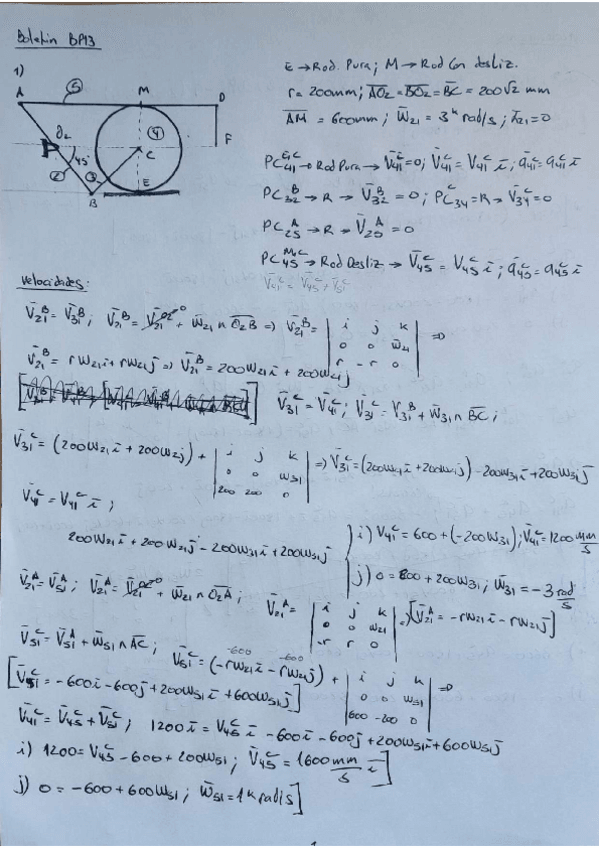 Boletin BP13
1)
E → Rod. Pura; M → Rod Con desliz.
r = 200mm; AO₂ = BO₂ = BC = 200√2 mm
AM = 600mm; W̄₂₁ = 3ᵏ rad/s; ᾱ₂₁ = 0
A
5
M
D
O₂
45°
4
C
F
2
3
B
E
PC₄₁^E,C → Rod Pura → V̄₄₁^E = 0; V̄₄₁^C = V₄₁^C ī; ā₄₁^C = a₄₁^C ī
PC₃₂^B → R → V̄₃₂^B = 0; PC₃₄^C = R → V̄₃₄^C = 0
PC₂₅^A → R → V̄₂₅^A = 0
PC₄₅^M,C → Rod Desliz → V̄₄₅^C = V₄₅^C ī; ā₄₅^C = a₄₅^C ī
V̄₄₁^C = V̄₄₅^C + V̄₅₁^C
Velocidades:
V̄₂₁^B = V̄₃₁^B; V̄₂₁^B = V̄₂₁^O2 ⁰ + W̄₂₁ ∧ O₂B ⇒ V̄₂₁^B = | i j k | ⇒
| 0 0 W̄₂₁ |
| r -r 0 |
V̄₂₁^B = rW₂₁i + rW₂₁j ⇒ V̄₂₁^B = 200W₂₁i + 200W₂₁j
V̄₃₁^C = V̄₄₁^C; V̄₃₁^C = V̄₃₁^B + W̄₃₁ ∧ BC;
V̄₃₁^C = (200W₂₁ī + 200W₂j) + | i j k | ⇒ V̄₃₁^C = (200W₂₁ī + 200W₂₁j) - 200W₃₁ī + 200W₃₁j
| 0 0 W₃₁ |
| 200 200 0 |
V̄₄₁^C = V₄₁^C ī;
200W₂₁ī + 200W₂₁j - 200W₃₁ī + 200W₃₁j
i) V₄₁^C = 600 + (-200W₃₁); V̄₄₁^C = 1200 mm/s
j) 0 = 600 + 200W₃₁; W̄₃₁ = -3 rad/s
V̄₂₁^A = V̄₅₁^A; V̄₂₁^A = V̄₂₁^O2 ⁰ + W̄₂₁ ∧ O₂A; V̄₂₁^A = | i j k | = [V̄₂₁^A = -rW₂₁ī - rW₂₁j]
| 0 0 W₂₁ |
| -r r 0 |
V̄₅₁^C = V̄₅₁^A + W̄₅₁ ∧ AC; V̄₅₁^C = (-rW₂₁ī - rW₂₁j) + | i j k | ⇒
-600 -600
| 0 0 W₅₁ |
| 600 -200 0 |
[V̄₅₁^C = -600ī - 600j + 200W₅₁ī + 600W₅₁j]
V̄₄₁^C = V̄₄₅^C + V̄₅₁^C; 1200ī = V₄₅^C ī - 600ī - 600j + 200W₅₁ī + 600W₅₁j
i) 1200 = V₄₅^C - 600 + 200W₅₁; V̄₄₅^C = 1600 mm/s ī]
j) 0 = -600 + 600W₅₁; W̄₅₁ = 1k rad/s]